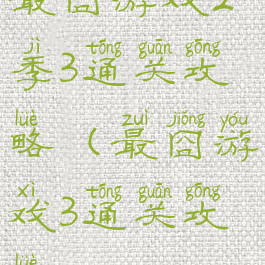 最囧游戏2
jì tōng guān gōng
季3通关攻
lüè zuì jiǒng yóu
略（最囧游
xì tōng guān gōng
戏3通关攻
lüè